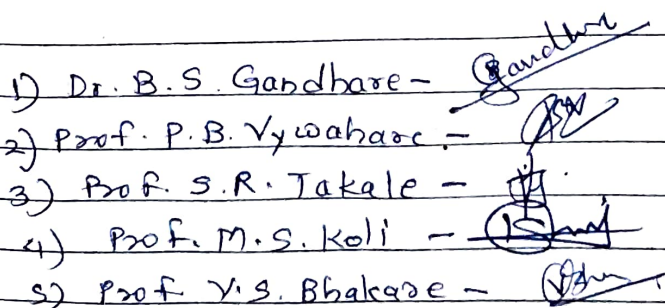 1) Dr. B. S. Gandhare -
2) Prof. P. B. Vywahare -
3) Prof. S. R. Takale -
4) Prof. M. S. Koli -
5) Prof V. S. Bhakare -